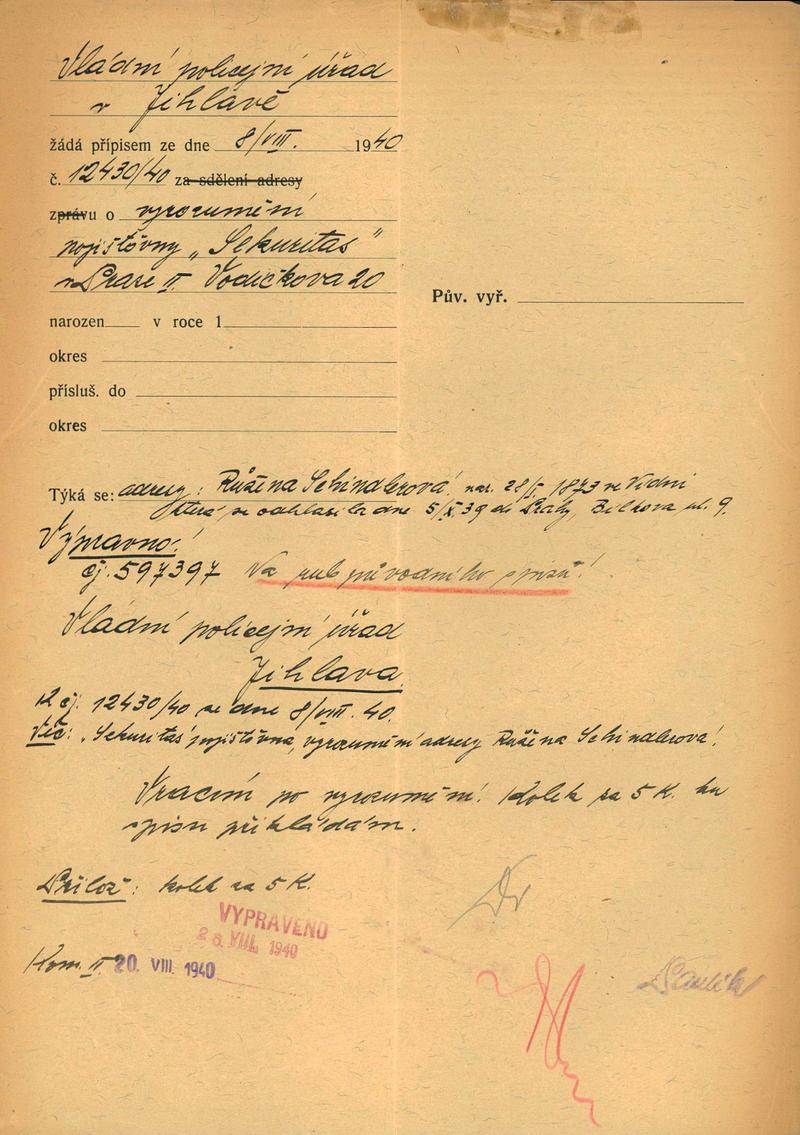 Vládní policejní úřad
v Jihlavě
žádá přípisem ze dne 8/VIII. 1940
č. 12430/40 za sdělení adresy
zprávu o vyrozumění
pojišťovny „Sekuritas"
v Praze II Vodičkova 20
Pův. vyř.
narozen v roce 1
okres
přísluš. do
okres
Týká se: adresy: Růžena Schindlerová, nar. 28/ 1873 ve Vídni
která se odhlásila dne 5/X.39 do Prahy, Bílkova ul. 9.
Výpravno:
čj. 597397 Na rub původního spisu!
Vládní policejní úřad
Jihlava
K čj. 12430/40 ze dne 8/VIII. 40.
Věc: „Sekuritas" pojišťovna, vyrozumění adresy Růžena Schindlerová.
Vracím po vyrozumění. Kolek za 5 K. ku
spisu přikládám.
Přílož: kolek za 5 K.
VYPRAVENO
VIII. 1940
Kom. II 20. VIII 1940
Dr